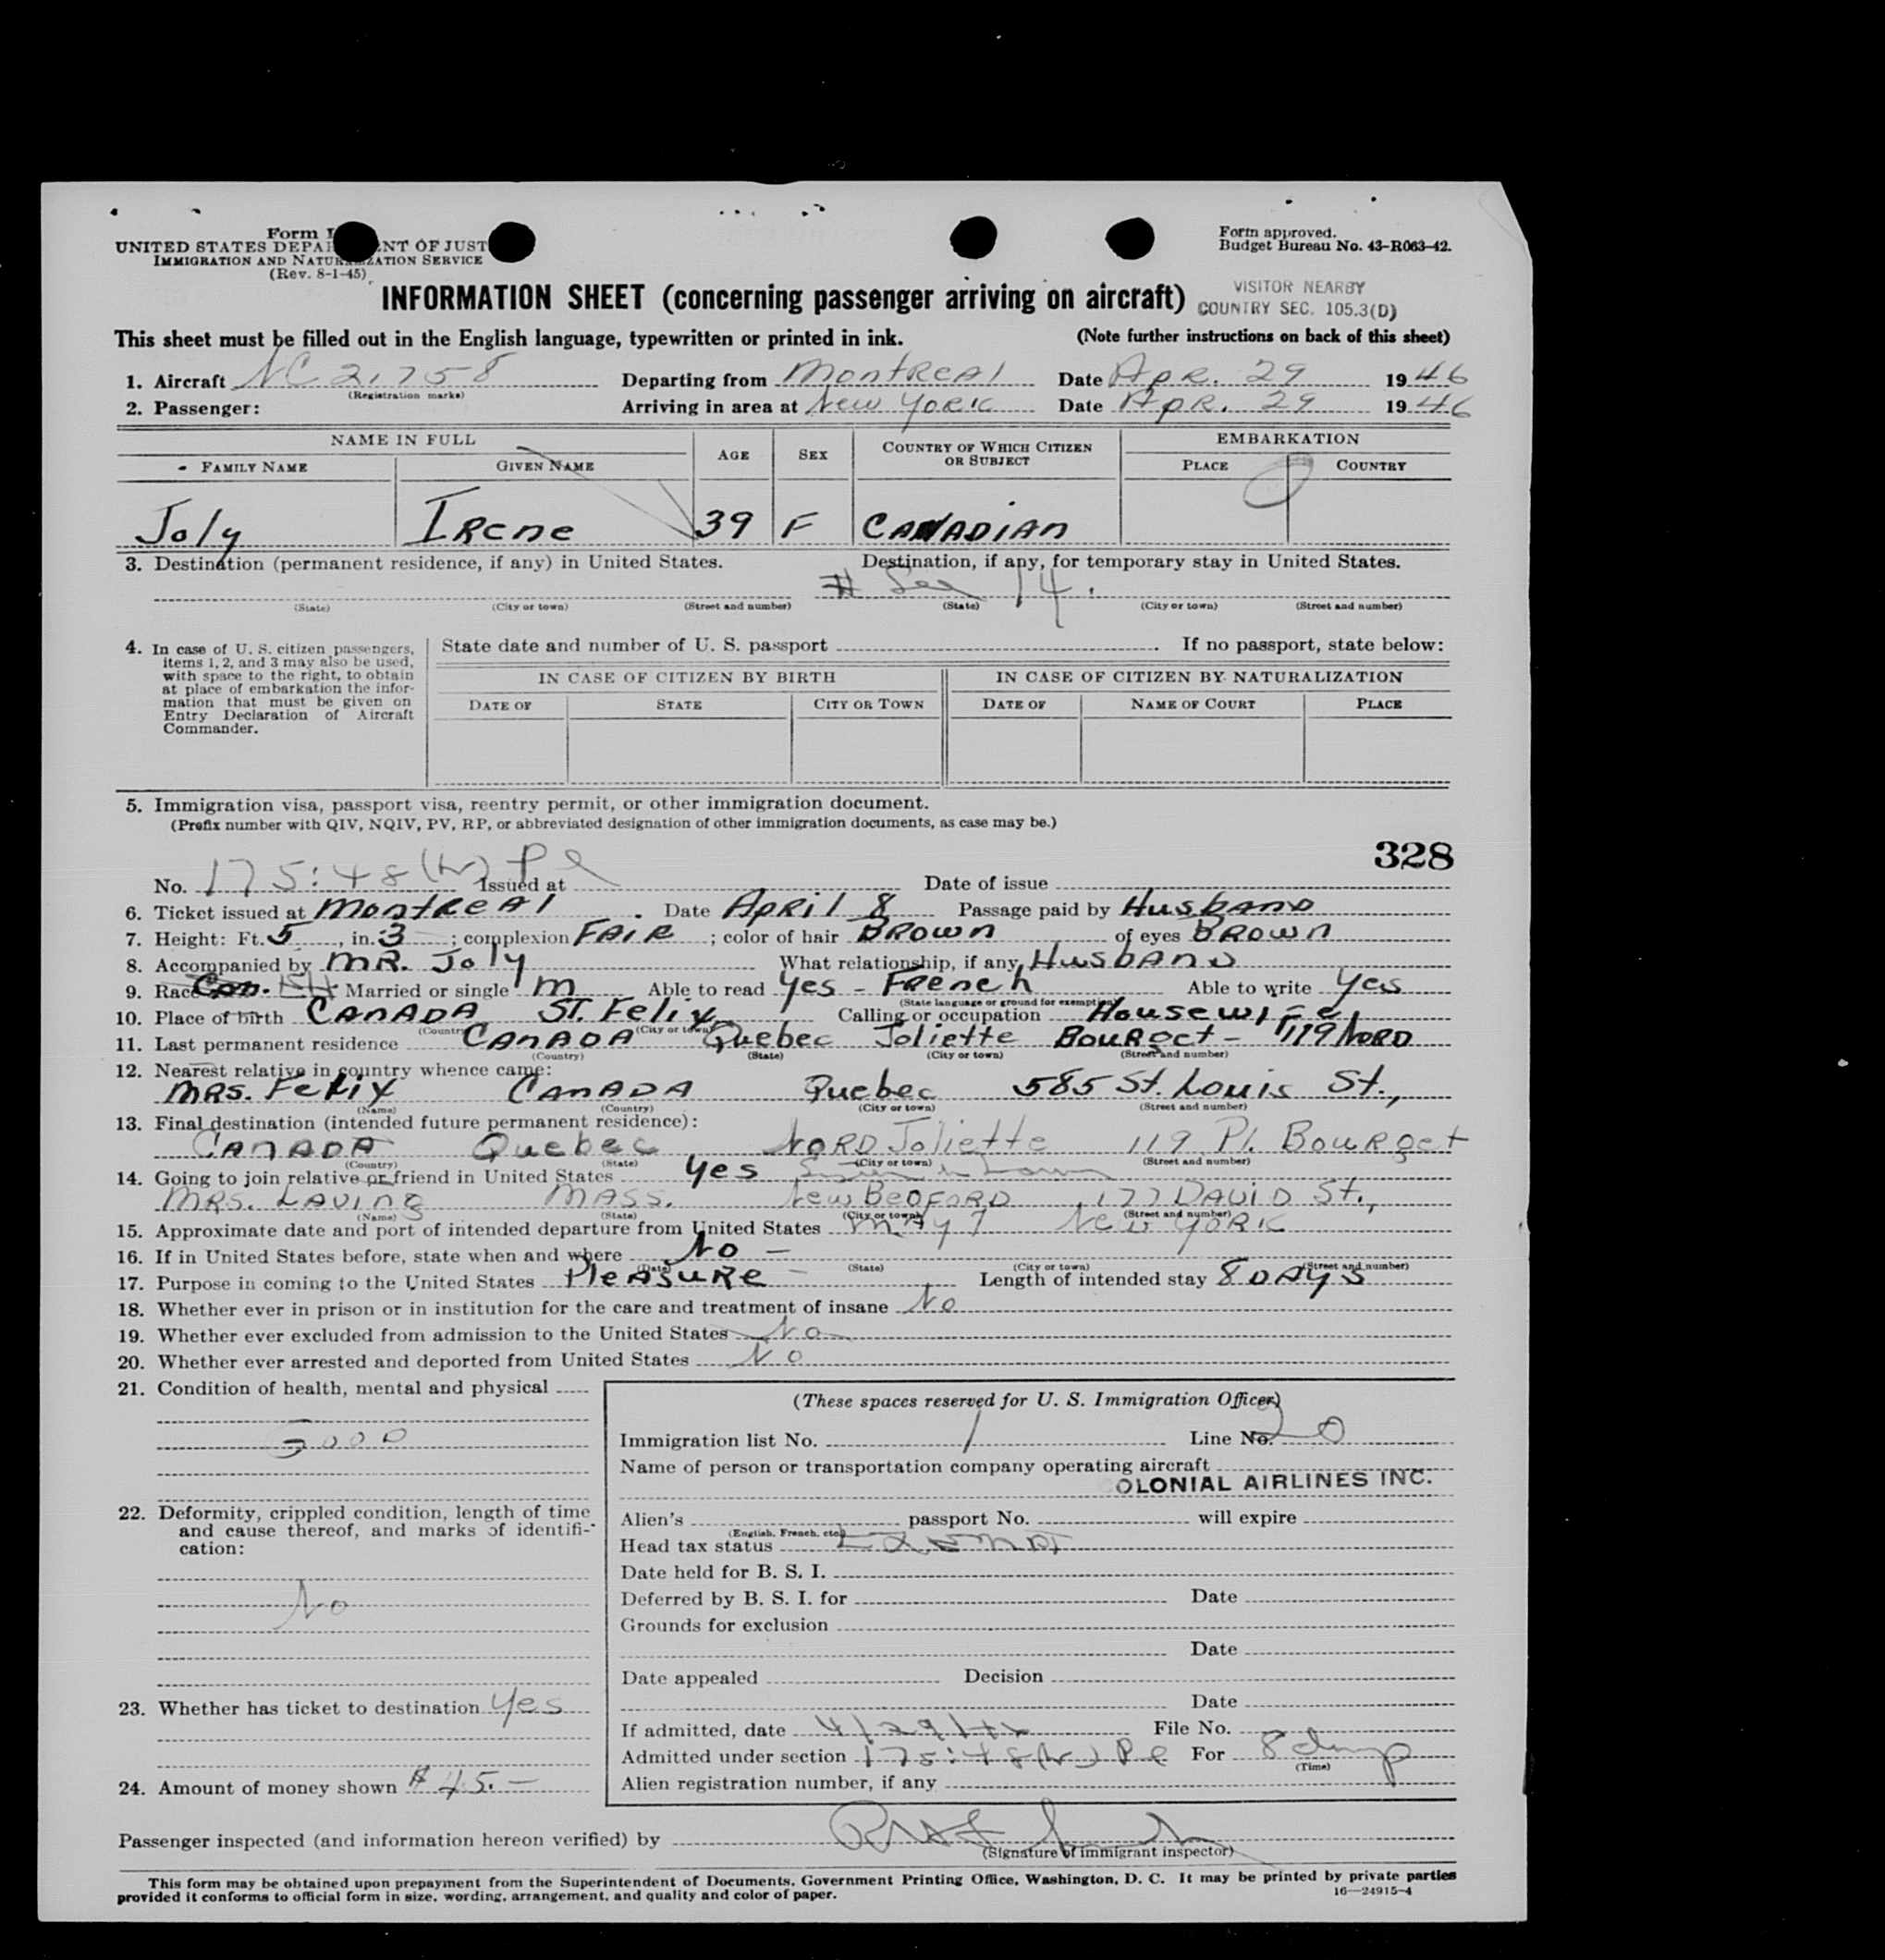 Form I
UNITED STATES DEPA NT OF JUST
IMMIGRATION AND NATURALIZATION SERVICE
(Rev. 8-1-45)
Form approved.
Budget Bureau No. 43-R063-42.
INFORMATION SHEET (concerning passenger arriving on aircraft)
VISITOR NEARBY
COUNTRY SEC. 105.3(D)
This sheet must be filled out in the English language, typewritten or printed in ink. (Note further instructions on back of this sheet)
1. Aircraft NC 21758 Departing from Montreal Date Apr. 29 1946
(Registration marks)
2. Passenger: Arriving in area at New York Date Apr. 29 1946
NAME IN FULL AGE SEX COUNTRY OF WHICH CITIZEN OR SUBJECT EMBARKATION
FAMILY NAME GIVEN NAME PLACE COUNTRY
Joly Irene 39 F CANADIAN
3. Destination (permanent residence, if any) in United States. Destination, if any, for temporary stay in United States.
# See 14.
(State) (City or town) (Street and number) (State) (City or town) (Street and number)
4. In case of U. S. citizen passengers, items 1, 2, and 3 may also be used, with space to the right, to obtain at place of embarkation the information that must be given on Entry Declaration of Aircraft Commander.
State date and number of U. S. passport . If no passport, state below:
IN CASE OF CITIZEN BY BIRTH IN CASE OF CITIZEN BY NATURALIZATION
DATE OF STATE CITY OR TOWN DATE OF NAME OF COURT PLACE
5. Immigration visa, passport visa, reentry permit, or other immigration document.
(Prefix number with QIV, NQIV, PV, RP, or abbreviated designation of other immigration documents, as case may be.)
328
No. 175:48 Issued at Date of issue
6. Ticket issued at Montreal . Date April 8 Passage paid by Husband
7. Height: Ft. 5, in. 3; complexion FAIR; color of hair Brown of eyes Brown
8. Accompanied by MR. Joly What relationship, if any, Husband
9. Race Married or single M Able to read Yes - French Able to write Yes
(State language or ground for exemption)
10. Place of birth CANADA ST. Felix Calling or occupation Housewife
(Country) (City or town)
11. Last permanent residence CANADA Quebec Joliette Bourget - 119 NORD
(Country) (State) (City or town) (Street and number)
12. Nearest relative in country whence came:
MRS. Felix CANADA Quebec 585 St. Louis St.,
(Name) (Country) (City or town) (Street and number)
13. Final destination (intended future permanent residence):
CANADA Quebec NORD Joliette 119 Pl. Bourget
(Country) (State) (City or town) (Street and number)
14. Going to join relative or friend in United States Yes
MRS. LAVING MASS. New Bedford 177 DAVID St.,
(Name) (State) (City or town) (Street and number)
15. Approximate date and port of intended departure from United States MAY 7 New York
16. If in United States before, state when and where No -
(Date) (State) (City or town) (Street and number)
17. Purpose in coming to the United States Pleasure - Length of intended stay 8 DAYS
18. Whether ever in prison or in institution for the care and treatment of insane No
19. Whether ever excluded from admission to the United States No
20. Whether ever arrested and deported from United States No
21. Condition of health, mental and physical
GOOD
22. Deformity, crippled condition, length of time and cause thereof, and marks of identification:
No
23. Whether has ticket to destination Yes
24. Amount of money shown $45.-
(These spaces reserved for U. S. Immigration Officer)
Immigration list No. 1 Line No. 20
Name of person or transportation company operating aircraft
COLONIAL AIRLINES INC.
Alien's passport No. will expire
(English, French, etc.)
Head tax status Exempt
Date held for B. S. I.
Deferred by B. S. I. for Date
Grounds for exclusion
Date
Date appealed Decision
Date
If admitted, date 4/29/46 File No.
Admitted under section 175:48 For 8 days
(Time)
Alien registration number, if any
Passenger inspected (and information hereon verified) by
(Signature of immigrant inspector)
This form may be obtained upon prepayment from the Superintendent of Documents, Government Printing Office, Washington, D. C. It may be printed by private parties
provided it conforms to official form in size, wording, arrangement, and quality and color of paper. 16—24915-4